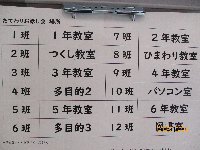 たてわりお楽しみ会 場所
1班 1年教室 7班 2年教室
2班 つくし教室 8班 ひまわり教室
3班 3年教室 9班 4年教室
4班 多目的2 10班 パソコン室
5班 5年教室 11班 6年教室
6班 多目的3 12班